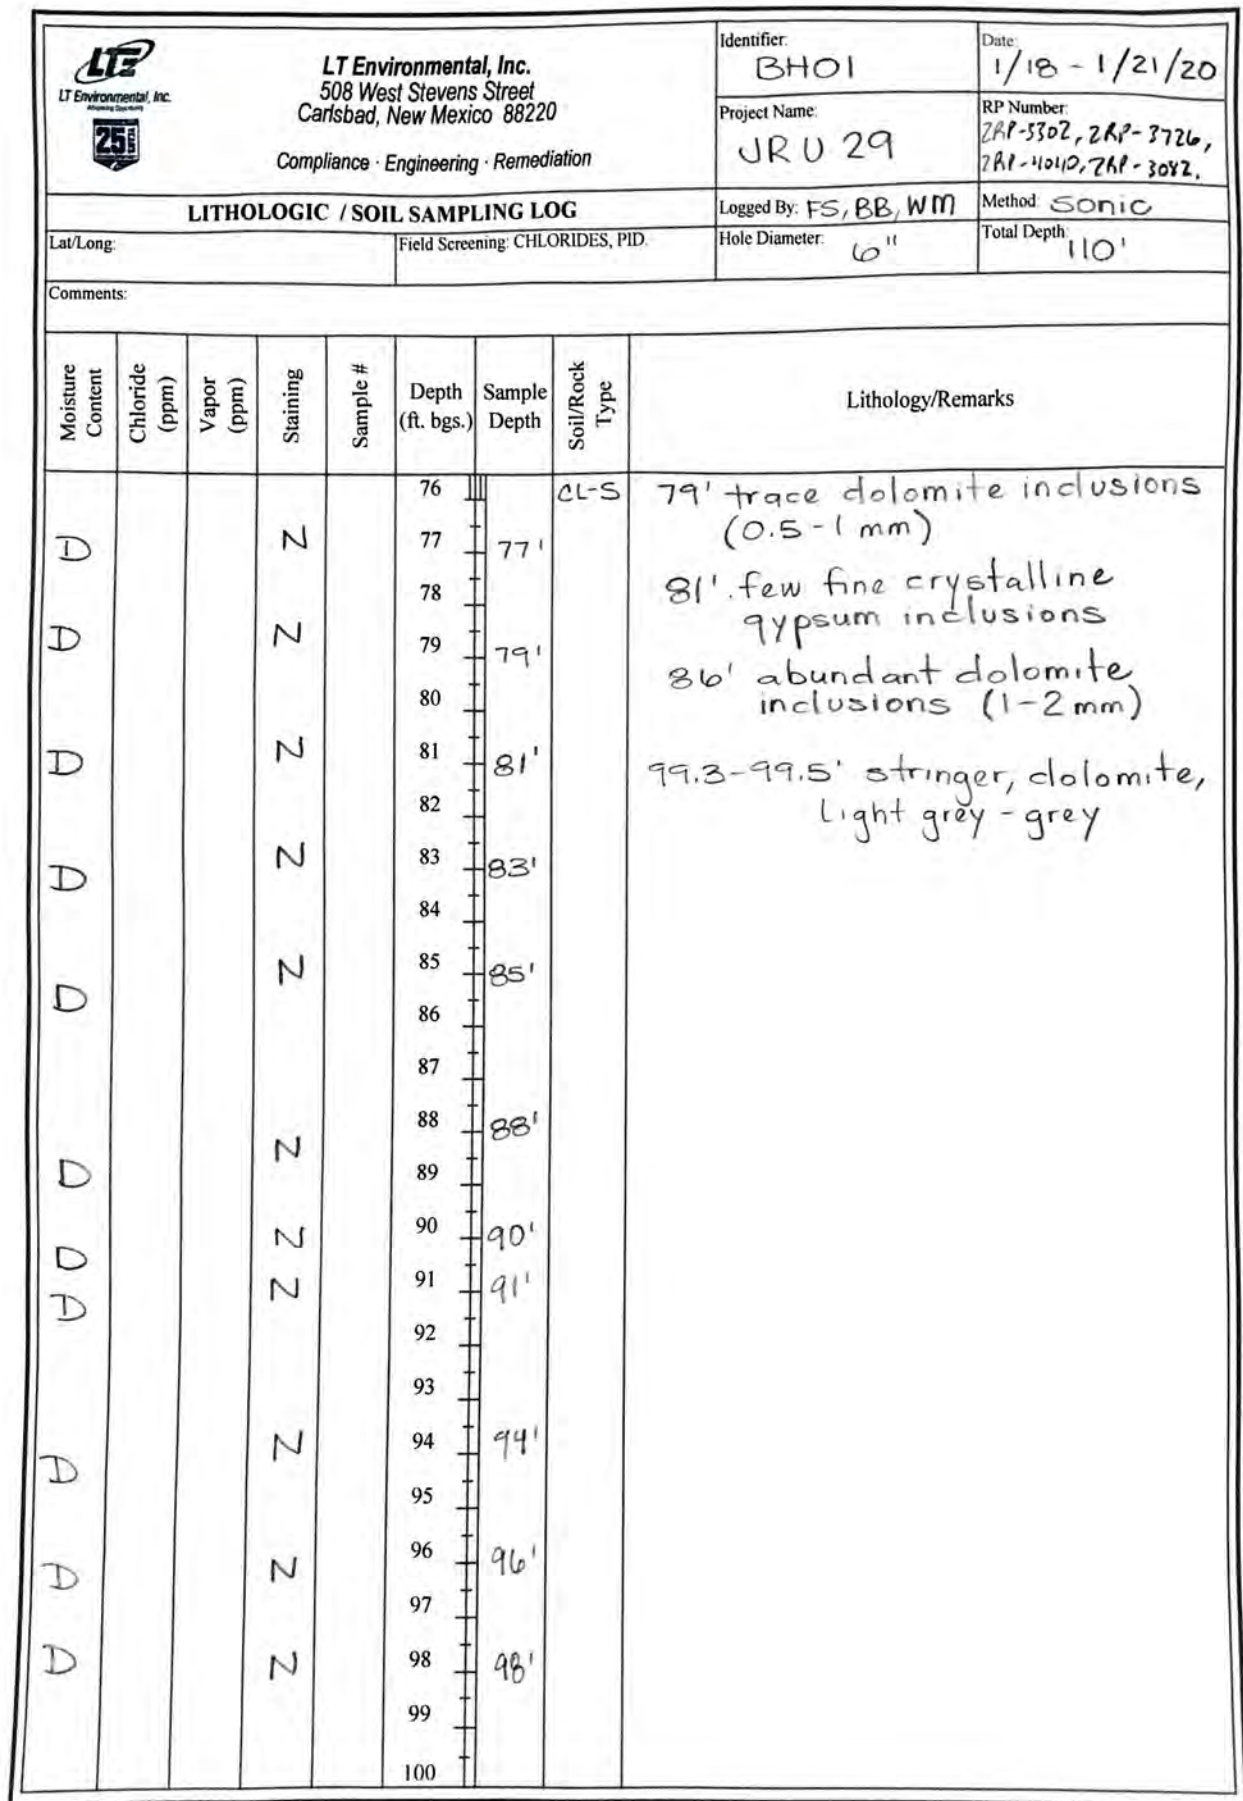 LTE
LT Environmental, Inc.
Advancing Opportunity
25
LT Environmental, Inc.
508 West Stevens Street
Carlsbad, New Mexico 88220
Compliance · Engineering · Remediation
Identifier:
BH01
Date:
1/18 - 1/21/20
Project Name:
JRU 29
RP Number:
2RP-5302, 2RP-3726,
2RP-4040, 2RP-3082.
LITHOLOGIC / SOIL SAMPLING LOG
Logged By: FS, BB, WM
Method: Sonic
Lat/Long:
Field Screening: CHLORIDES, PID.
Hole Diameter: 6"
Total Depth: 110'
Comments:
Moisture Content
Chloride (ppm)
Vapor (ppm)
Staining
Sample #
Depth (ft. bgs.)
Sample Depth
Soil/Rock Type
Lithology/Remarks
76 CL-S 79' trace dolomite inclusions
(0.5-1 mm)
D N 77 77'
78 81' few fine crystalline
gypsum inclusions
D N 79 79'
86' abundant dolomite
80 inclusions (1-2 mm)
D N 81 81' 99.3-99.5' stringer, dolomite,
82 light grey - grey
D N 83 83'
84
D N 85 85'
86
87
88 88'
D N 89
D N 90 90'
D N 91 91'
92
93
D N 94 94'
95
D N 96 96'
97
D N 98 98'
99
100